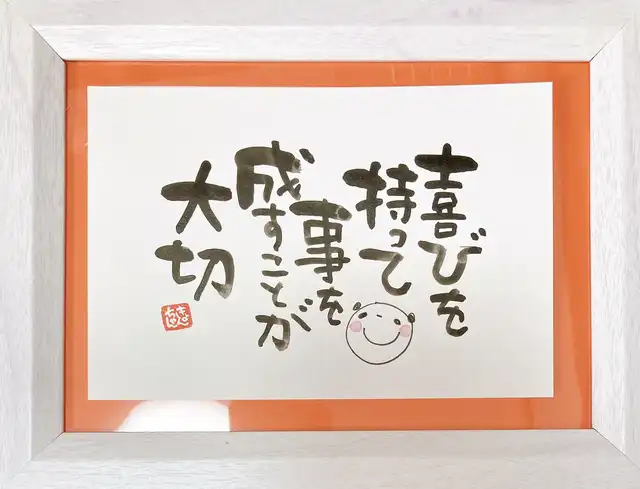 喜びを
持って
事を
成すことが
大切